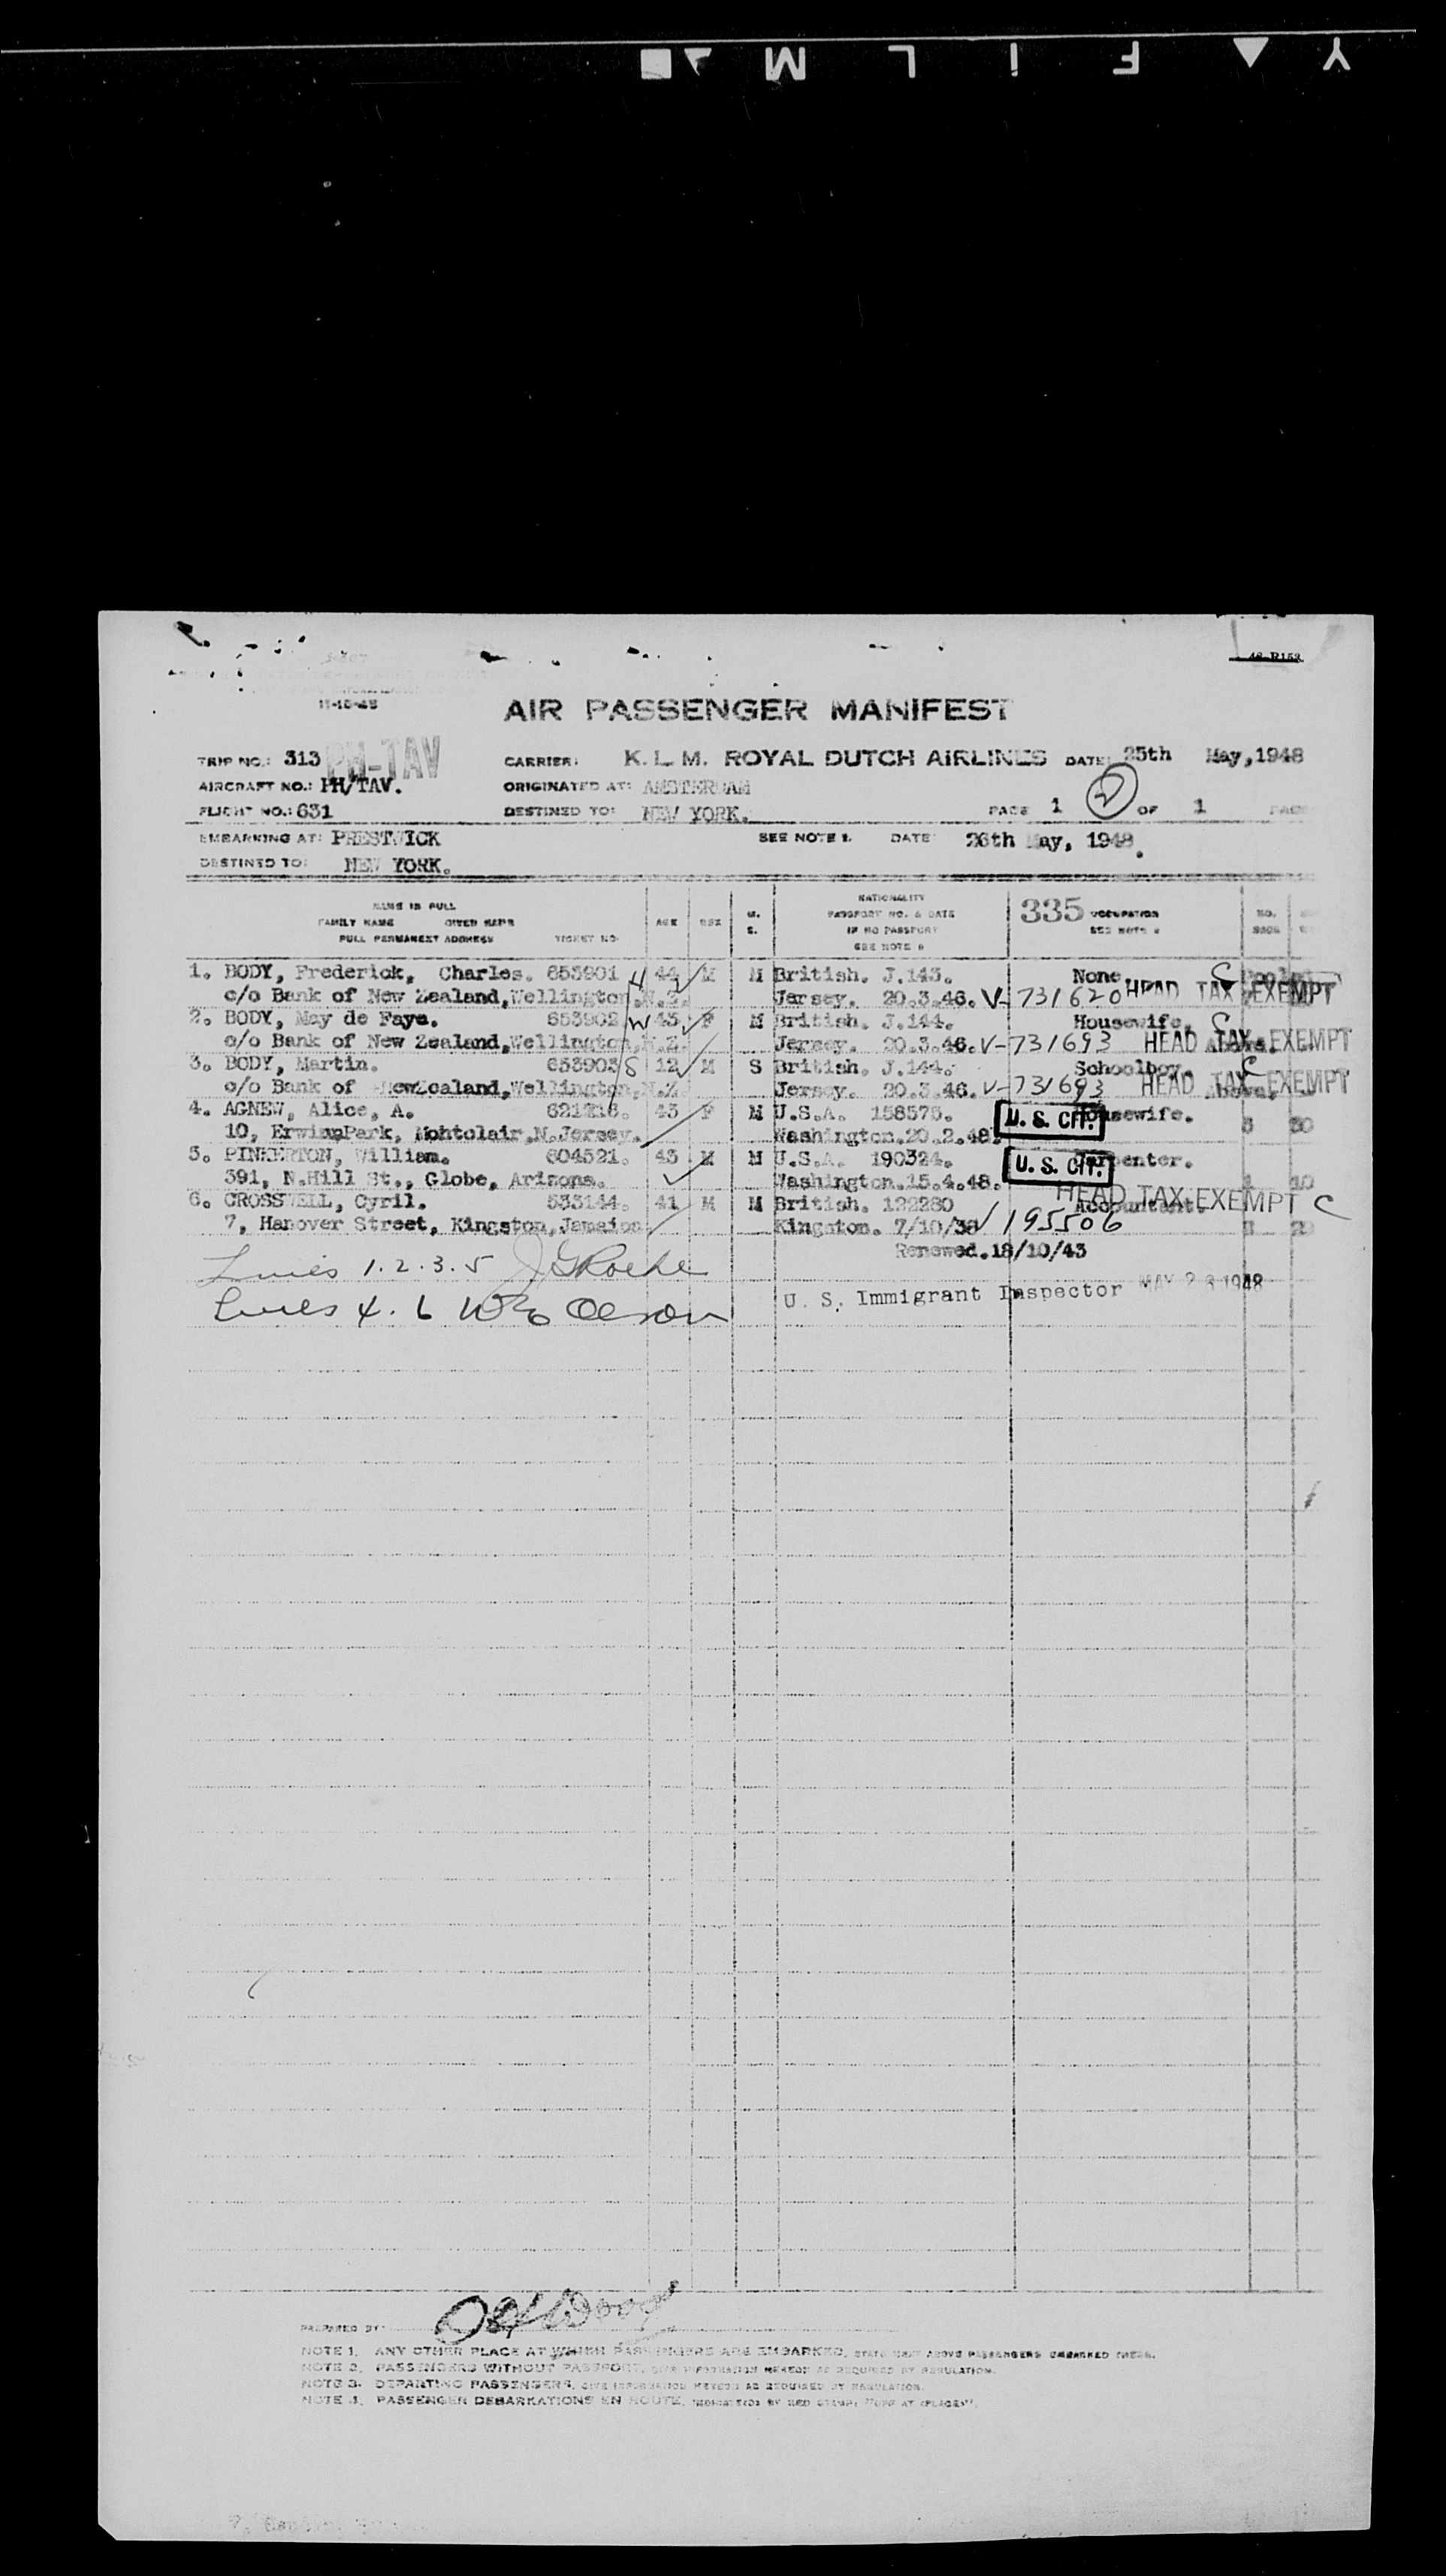 Y ▲ F i L M
46-R153
11-18-48
AIR PASSENGER MANIFEST
TRIP NO.: 313 PH-TAV CARRIER: K. L. M. ROYAL DUTCH AIRLINES DATE: 25th May, 1948
AIRCRAFT NO.: PH/TAV. ORIGINATED AT: AMSTERDAM
FLIGHT NO.: 631 DESTINED TO: NEW YORK. PAGE 1 2 OF 1 PAGE
EMBARKING AT: PRESTWICK SEE NOTE 1. DATE 26th May, 1948.
DESTINED TO: NEW YORK.
NAME IN FULL
FAMILY NAME GIVEN NAME
FULL PERMANENT ADDRESS TICKET NO.
AGE SEX M. S.
NATIONALITY
PASSPORT NO. & DATE
IF NO PASSPORT
SEE NOTE
335 OCCUPATION
SEE NOTE
NO.
1. BODY, Frederick, Charles. 653901 H 44 M M British. J.143. None C Pooled
c/o Bank of New Zealand, Wellington, N.Z. Jersey. 20.3.46. V-731620 HEAD TAX EXEMPT
2. BODY, May de Faye. 653902 W 43 F M British. J.144. Housewife. C
c/o Bank of New Zealand, Wellington, N.Z. Jersey. 20.3.46. V-731693 HEAD TAX EXEMPT
3. BODY, Martin. 653903 S 12 M S British. J.144. Schoolboy. C
c/o Bank of NewZealand, Wellington, N.Z. Jersey. 20.3.46. V-731693 HEAD TAX EXEMPT
4. AGNEW, Alice, A. 621216. 43 F M U.S.A. 158575. U. S. CIT. Housewife.
10, ErwinPark, Mohtolair, N.Jersey. Washington.20.2.48.
5. PINKERTON, William. 604521. 43 M M U.S.A. 190324. U. S. CIT. Carpenter.
391, N.Hill St., Globe, Arizona. Washington.15.4.48.
6. CROSSWELL, Cyril. 533144. 41 M M British. 122280 Accountant. HEAD TAX EXEMPT C
7, Hanover Street, Kingston, Jamaica Kingston. 7/10/38 V 195506
Renewed.18/10/43
Lines 1.2.3.5 J G Roche
Lines 4. 6 Olson
U. S. Immigrant Inspector MAY 26 1948
PREPARED BY:
NOTE 1. ANY OTHER PLACE AT WHICH PASSENGERS ARE EMBARKED, STATE NEXT ABOVE PASSENGERS EMBARKED THERE.
NOTE 2. PASSENGERS WITHOUT PASSPORT, GIVE INFORMATION HEREON AS REQUIRED BY REGULATION.
NOTE 3. DEPARTING PASSENGERS, GIVE INFORMATION HEREON AS REQUIRED BY REGULATION.
NOTE 4. PASSENGER DEBARKATIONS EN ROUTE, INDICATED BY RED STAMP: "OFF AT (PLACE)".